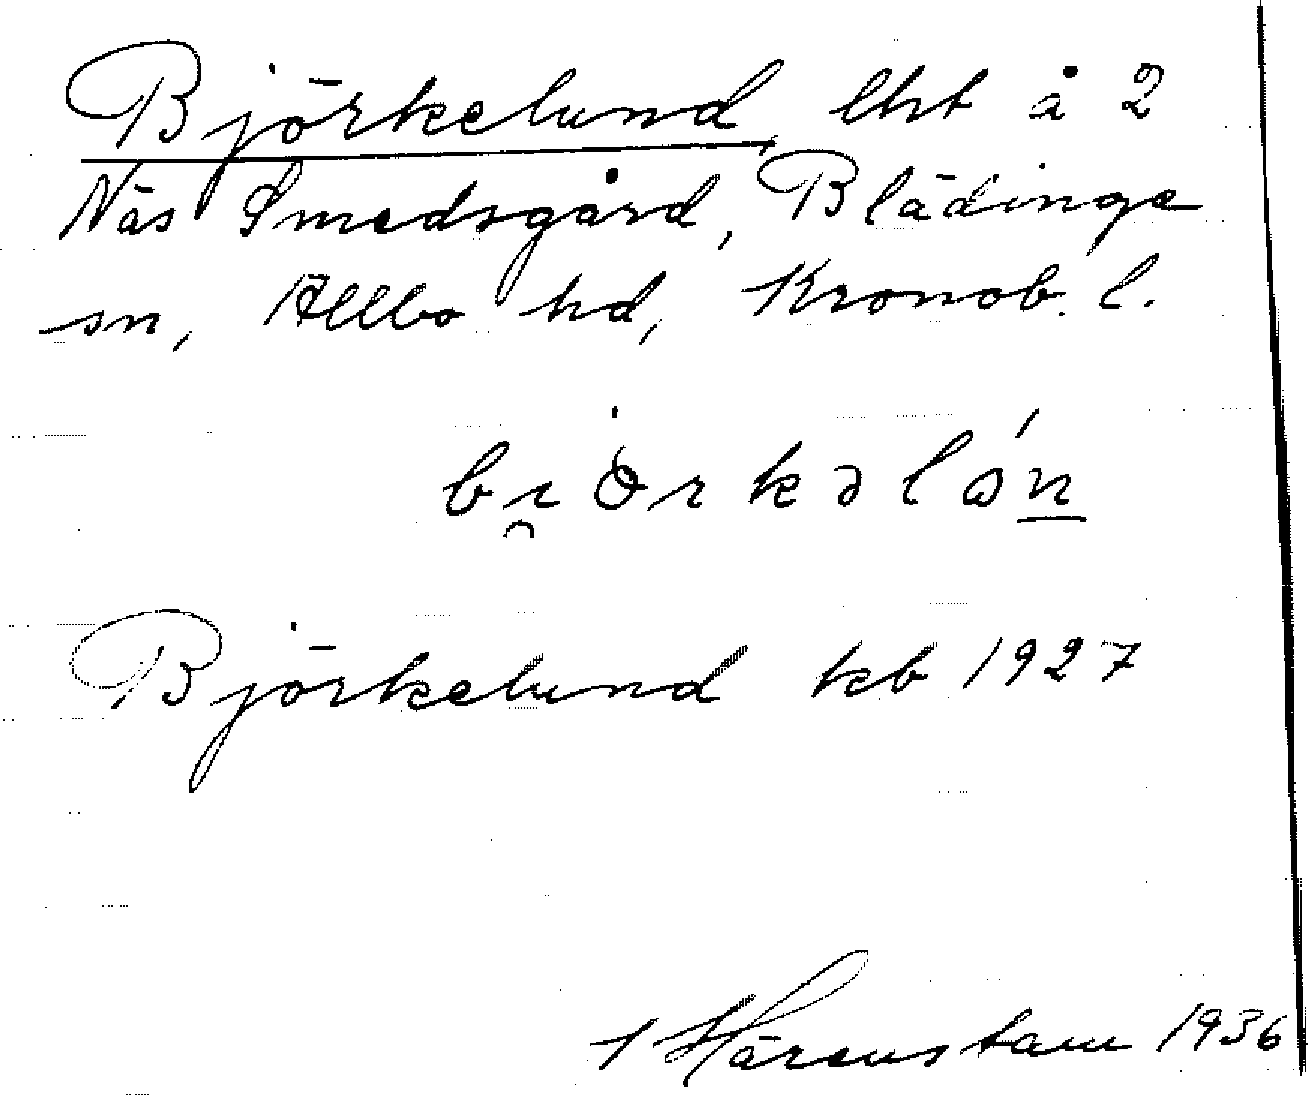 Björkelund, lht å 2
Näs Smedsgård, Blädinge
sn, Allbo hd, Kronob. l.
Björkelund kb 1927
Härenstam 1936